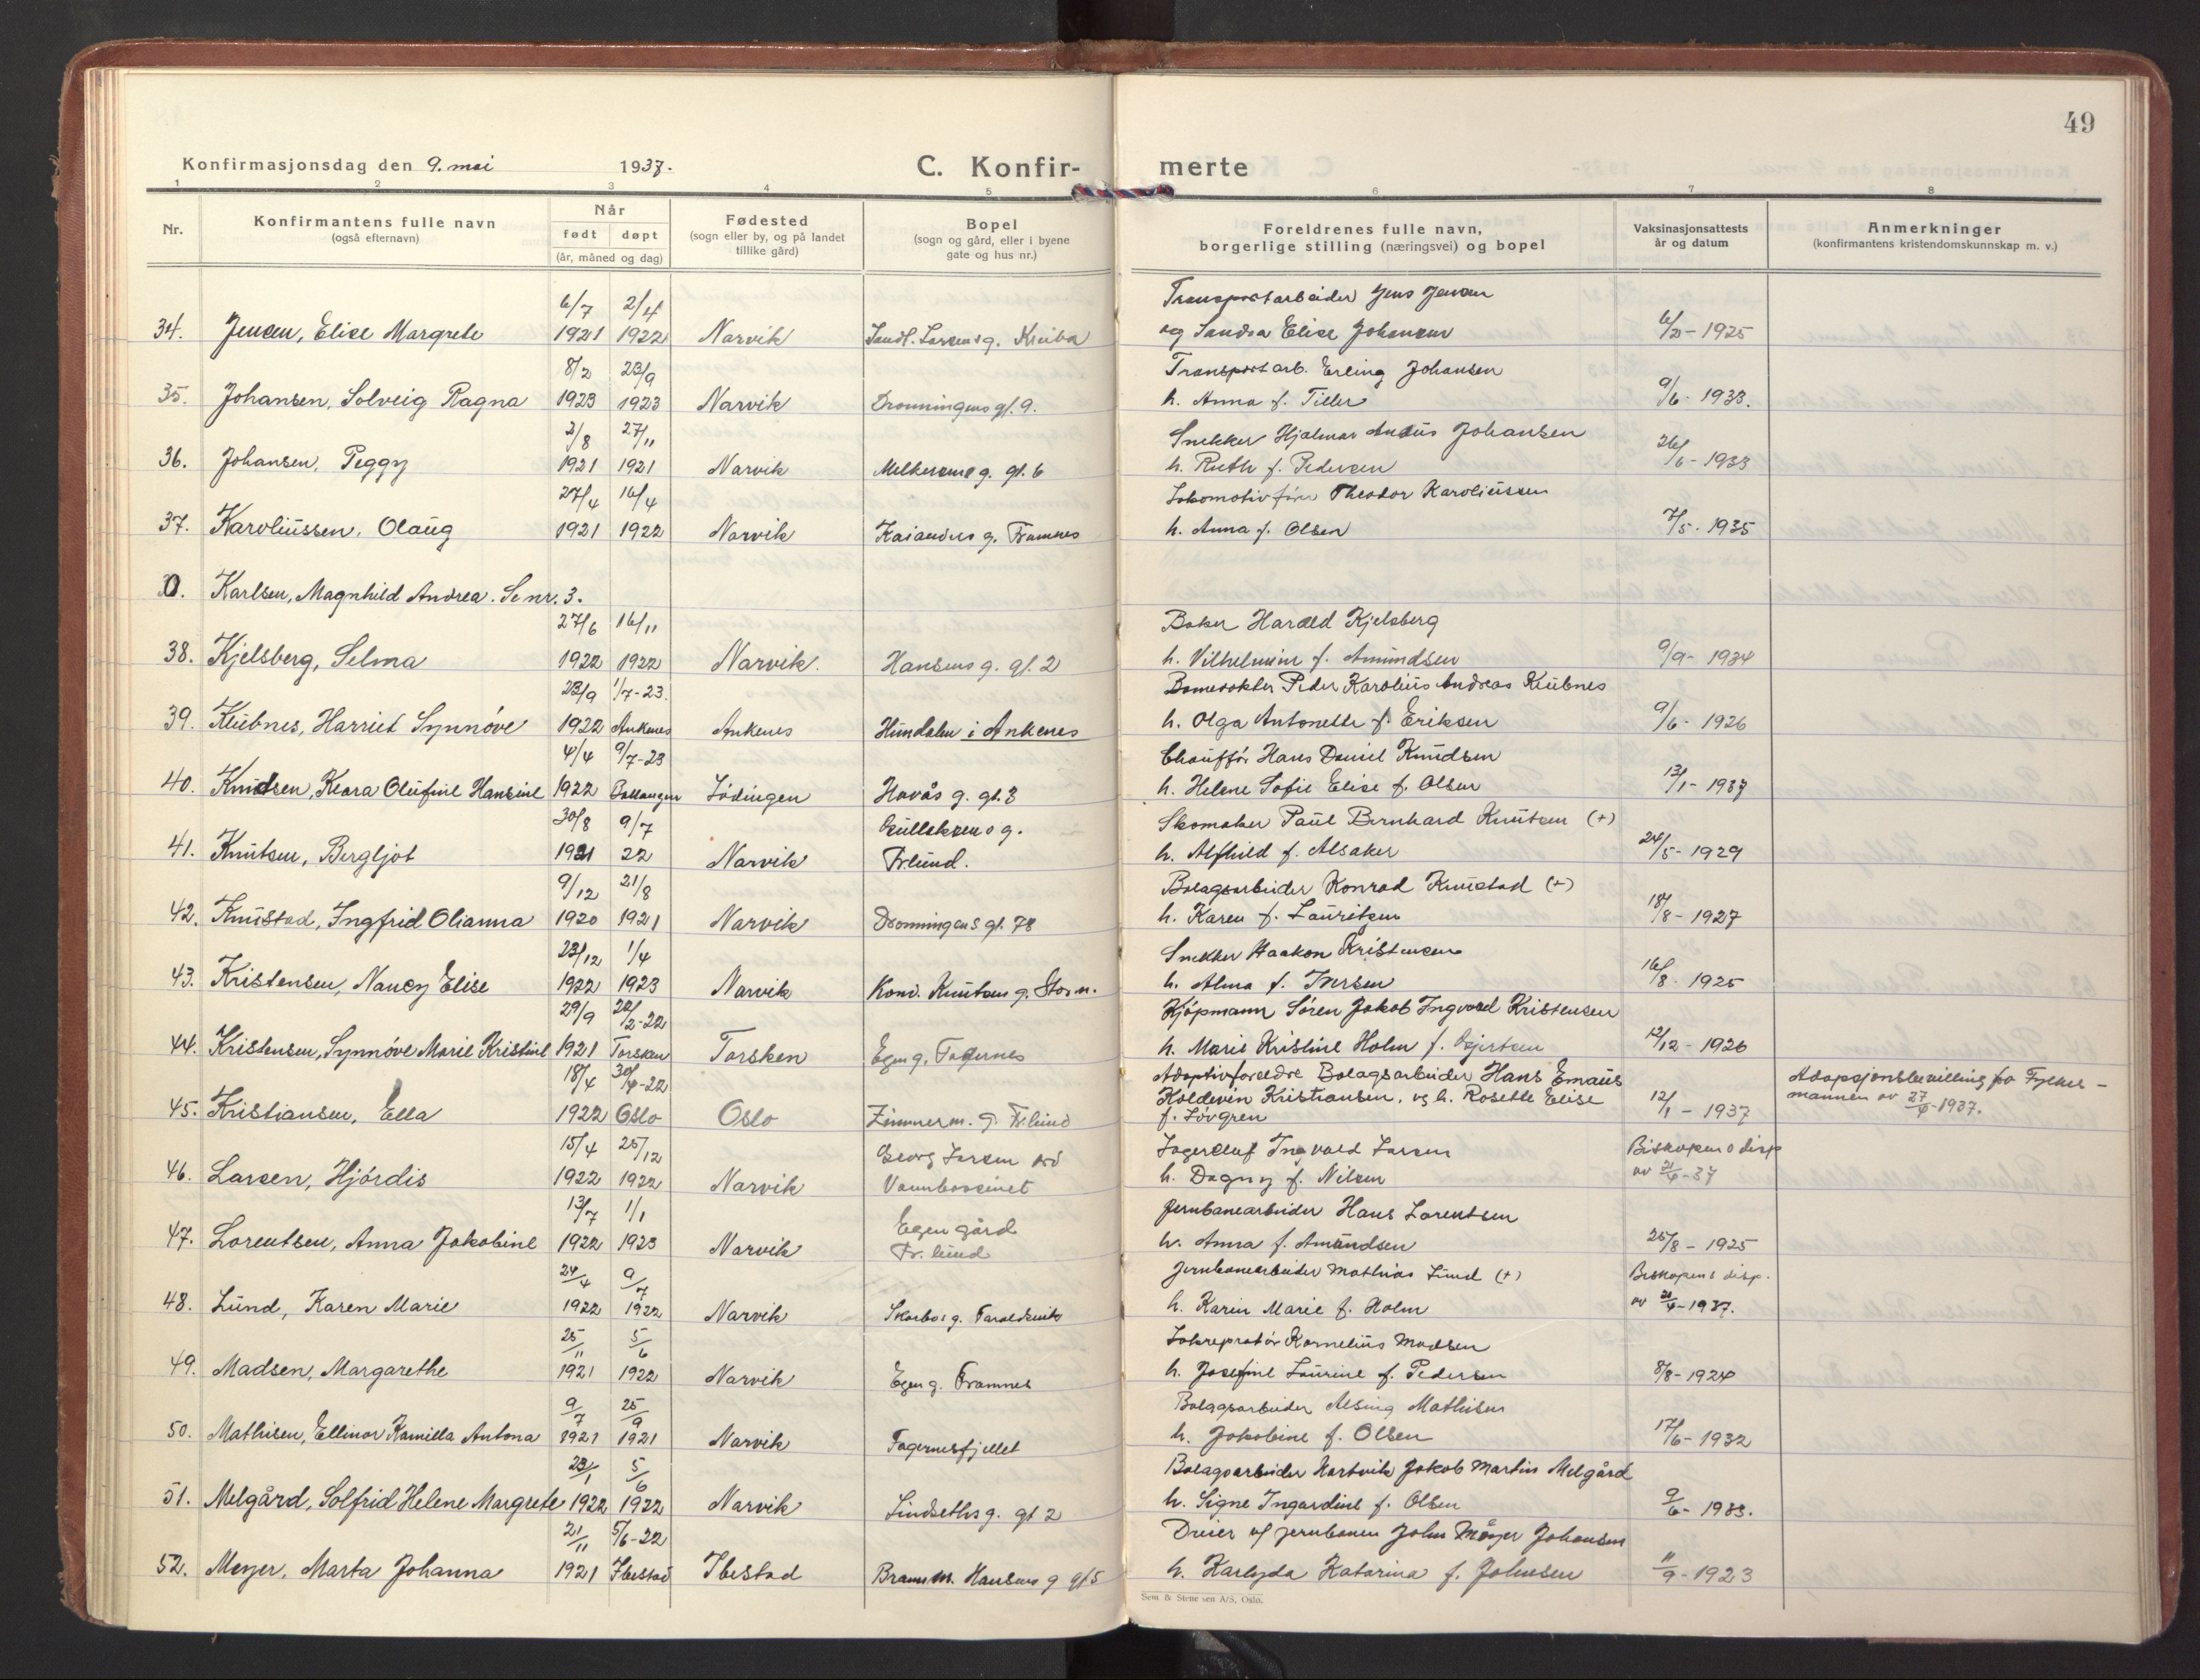 49
Konfirmasjonsdag den 9. mai 1937.
C. Konfir-
merte
1 2 3 4 5 6 7 8
Nr.
Konfirmantens fulle navn
(også efternavn)
Når
født døpt
(år, måned og dag)
Fødested
(sogn eller by, og på landet
tillike gård)
Bopel
(sogn og gård, eller i byene
gate og hus nr.)
Foreldrenes fulle navn,
borgerlige stilling (næringsvei) og bopel
Vaksinasjonsattests
år og datum
Anmerkninger
(konfirmantens kristendomskunnskap m. v.)
6/7 2/4 Transportarbeider Jens Jensen
34. Jensen, Elise Margrete 1921 1922 Narvik og Sandra Elise Johansen 1925
8/2 23/9 Transportarb. Erling Johansen
35. Johansen, Solveig Ragna 1923 1923 Narvik Dronningens gt. 9. h. Anna f. Tiller 9/6 - 1933.
2/8 27/11 Snekker Hjalmar Johansen
36. Johansen, Peggy 1921 1921 Narvik g. gt. 6 h. Ruth f. Pedersen 26/6 - 1933
27/4 16/4 Lokomotivfører Theodor Karoliussen
37. Karoliussen, Olaug 1921 1922 Narvik g. Framnes h. Anna f. Olsen 7/5 - 1935
0. Karlsen, Magnhild Andrea. Se nr. 3.
27/6 16/11 Baker Harald Kjelsberg
38. Kjelsberg, Selma 1922 1922 Narvik. Hansens g. gt. 2 h. Vilhelmine f. Amundsen 9/9 - 1934
23/9 1/7-23. Banevokter Peder Karolius Andreas Klubnes
39. Klubnes, Harriet Synnøve 1922 Ankenes Ankenes Hundalen i Ankenes h. Olga Antonette f. Eriksen 9/6 - 1926
4/4 9/7-23 Chauffør Hans Daniel Knudsen
40. Knudsen, Klara Olufine Hansine 1922 Ballangen Lødingen Havås g. gt. 3 h. Helene Sofie Elise f. Olsen 13/1 - 1937
30/8 9/7 Gulleksens g. Skomaker Paul Bernhard Knutsen (+)
41. Knutsen, Bergljot 1921 22 Narvik Fr.lund. h. Alfhild f. Alsaker 24/5 - 1929
9/12 21/8 Bolagsarbeider Konrad Knustad (+)
42. Knustad, Ingfrid Olianna 1920 1921 Narvik Dronningens gt. 78 h. Karen f. Lauritsen 18/8 - 1927
23/12 1/4 Snekker Haakon Kristensen
43. Kristensen, Nancy Elise 1922 1923 Narvik Knutsens g. h. Alma f. Iversen 16/8 - 1925
29/9 2-22 Kjøpmann Søren Jakob Ingvard Kristensen
44. Kristensen, Synnøve Marie Kristine 1921 Torsken Torsken Egen g. Fagernes h. Marie Kristine Holm f. Gjertsen 12/12 - 1926
18/4 30/4-22 Adoptivforeldre Bolagsarbeider Hans Emaus Adopsjonsbevilling fra Fylkes-
45. Kristiansen, Ella 1922 Oslo Oslo Zimmerm. g. Fr.lund Koldevin Kristiansen, og h. Rosette Elise f. Løvgren 12/1 - 1937 mannen av 27/4-1937.
15/4 25/12 Georg Larsen Lagerchef Ingvald Larsen Biskopens disp
46. Larsen, Hjørdis 1922 1922 Narvik Vannbasseinet h. Dagny f. Nilsen av 21/4-37
13/7 1/1 Egen gård Jernbanearbeider Hans Lorentsen
47. Lorentsen, Anna Jakobine 1922 1923 Narvik Fr. lund h. Anna f. Amundsen 25/8 - 1925
24/4 9/7 Jernbanearbeider Mathias Lund (+) Biskopens disp.
48. Lund, Karen Marie 1922 1922 Narvik g. Taraldsvik h. Karin Marie f. Holm av 21/4-1937.
25/11 5/6 Lokreparatør Kornelius Madsen
49. Madsen, Margarethe 1921 1922 Narvik Egen g. Framnes h. Josefine Laurine f. Pedersen 8/8 - 1924
9/7 25/9 Bolagsarbeider Alsing Mathisen
50. Mathisen, Ellinor Kamilla Antona 1921 1921 Narvik Fagernesfjellet h. Jakobine f. Olsen 17/6 - 1932
23/1 5/6 Bolagsarbeider Hartvik Jakob Martin Melgård
51. Melgård, Solfrid Helene Margrete 1922 1922 Narvik Lindseths g. gt 2 h. Signe Ingardine f. Olsen 9/6 - 1933.
21/11 5/6-22 Dreier v/ jernbanen John Meyer Johansen
52. Meyer, Marta Johanna 1921 Ibestad Ibestad Hansens g gt 5 h. Karlyda Katarina f. Johnsen 11/9 - 1923
Sem & Stenersen A/S, Oslo.